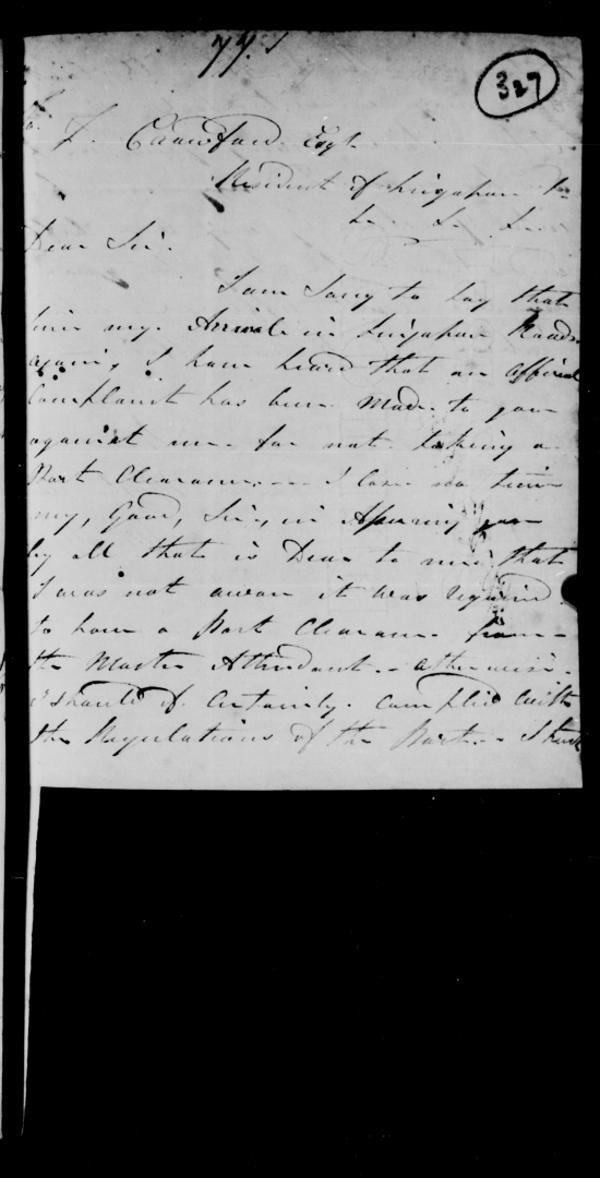 77.
327
J. Crawford Esqr.
Resident of Singapore &c
&c. &c. &c.
Dear Sir.
I am Sorry to Say that
since my Arrival in Singapore Roads
again, I have heard that an official
Complaint has been Made to you
against me for not taking a
Port Clearance. I lose no time
my, Good, Sir, in Assuring you
by all that is Dear to me, that
I was not aware it was required
to have a Port Clearance from
the Master Attendant. otherwise
I should of Certainly Complied With
the Regulations of the Port. I trust